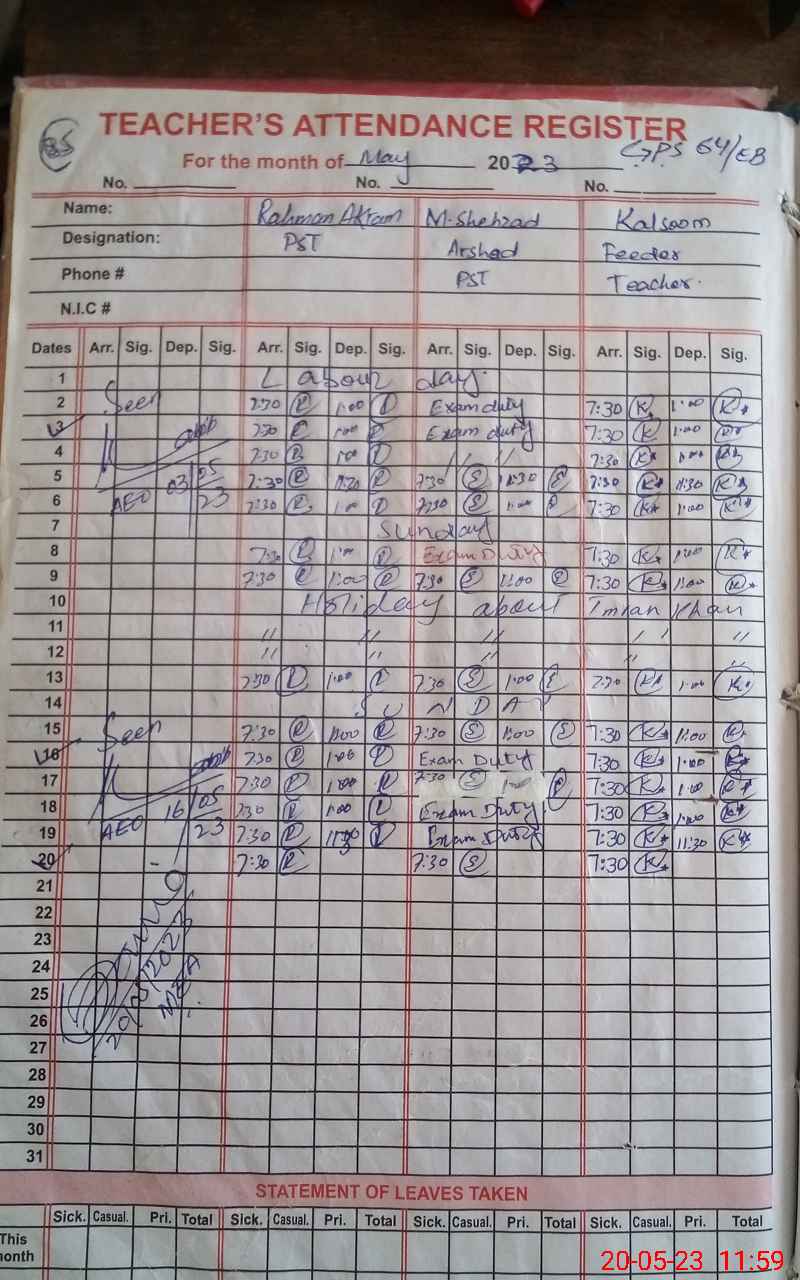 85
TEACHER'S ATTENDANCE REGISTER
For the month of May 2023 GPS 64/EB
No. No. No.
Name: Rahman Akram M-Shehzad Kalsoom
Designation: PST Arshad Feeder
Phone # PST Teacher.
N.I.C #
Dates Arr. Sig. Dep. Sig. Arr. Sig. Dep. Sig. Arr. Sig. Dep. Sig. Arr. Sig. Dep. Sig.
1 Labour day.
2 Seen 7:30 R 1:00 Exam duty 7:30 K 1:00 K
3 7:30 1:00 Exam duty 7:30 K 1:00
4 7:30 R 1:00 // // 7:30 K 1:00
5 03/05 7:30 R 7:30 S 11:30 S 7:30 K 11:30 K
6 AEO 23 7:30 R 1:00 7:30 S 1:00 7:30 K 1:00 K
7 Sunday
8 7:30 R 1:00 R Exam Duty 7:30 K 1:00 K
9 7:30 R 1:00 R 7:30 S 1:00 S 7:30 K 1:00 K
10 Holiday about Imran Khan
11 // // // // //
12 // // // // //
13 7:30 1:00 7:30 S 1:00 7:30 K 1:00 K
14 SUNDAY
15 Seen 7:30 R 1:00 R 7:30 S 1:00 S 7:30 K 1:00 K
16 7:30 R 1:00 Exam Duty 7:30 K 1:00 K
17 7:30 R 1:00 R 7:30 S 1:00 7:30 K 1:00 K
18 16/05 7:30 1:00 Exam Duty 7:30 K 1:00 K
19 AEO 23 7:30 R 11:30 Exam Duty 7:30 K 11:30 K
20 7:30 R 7:30 S 7:30 K
21
22
23
24
25 20/05/2023
26 MEA
27
28
29
30
31
STATEMENT OF LEAVES TAKEN
Sick. Casual. Pri. Total Sick. Casual. Pri. Total Sick. Casual. Pri. Total Sick. Casual. Pri. Total
This
month
20-05-23 11:59